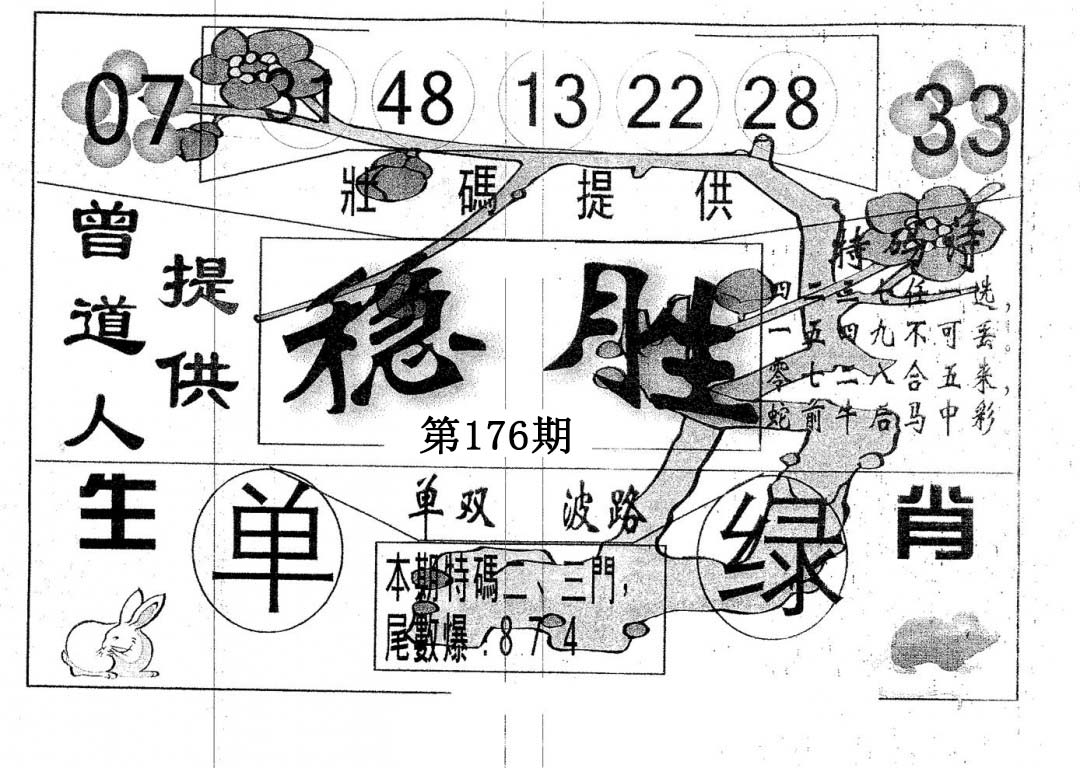 07 31 48 13 22 28 33
壯碼提供
曾道人
提供
稳胜
第176期
特码诗
四二三七任一选，
一五四九不可丢。
零七二八合五来，
蛇前牛后马中彩
生肖
单双 波路
单 绿
本期特碼二、三門，
尾數爆：874